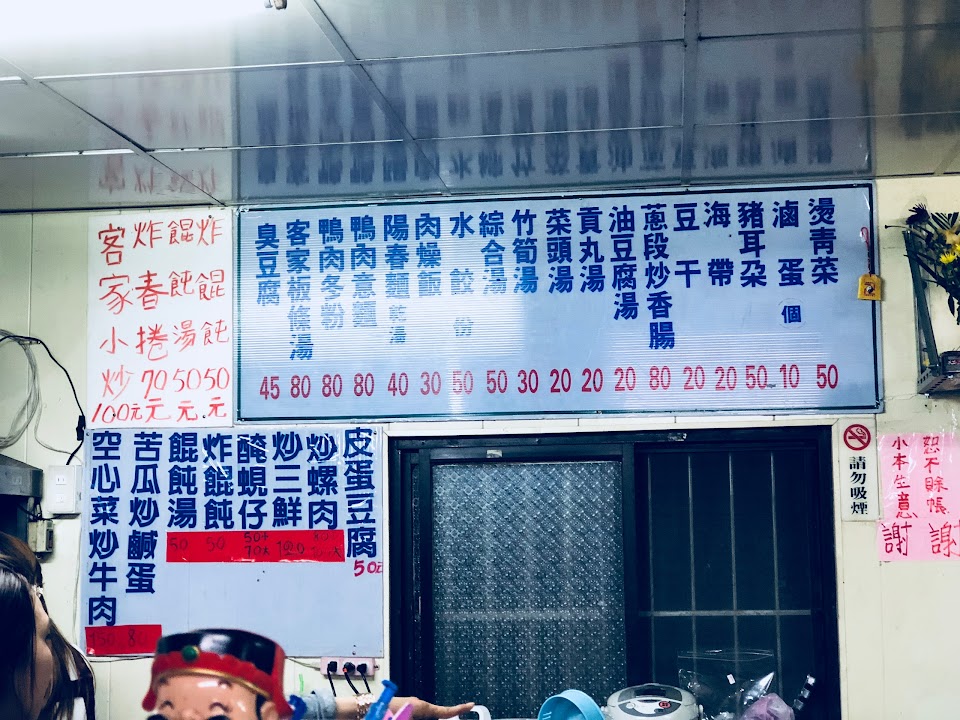 燙青菜 50
滷蛋 個 10
豬耳朵 50
海帶 20
豆干 20
蔥段炒香腸 80
油豆腐湯 20
貢丸湯 20
菜頭湯 20
竹筍湯 30
綜合湯 50
水餃 份 50
肉燥飯 30
陽春麵 乾湯 40
鴨肉意麵 80
鴨肉冬粉 80
客家板條湯 80
臭豆腐 45
炸餛飩 50元
餛飩湯 50元
炸春捲 70元
客家小炒 100元
皮蛋豆腐 50元
炒螺肉
炒三鮮
醃蜆仔
炸餛飩 50
餛飩湯 50
苦瓜炒鹹蛋 80
空心菜炒牛肉
請勿吸煙
恕不賒帳
小本生意
謝謝